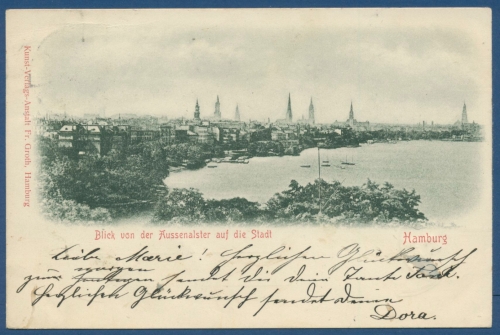 Kunst-Verlags-Anstalt Fr. Groth, Hamburg
Blick von der Aussenalster auf die Stadt
Hamburg
Liebe Marie! Herzlichen Glückwunsch
zur sendet dir deine Tante
Herzlichen Glückwunsch sendet deine
Dora.